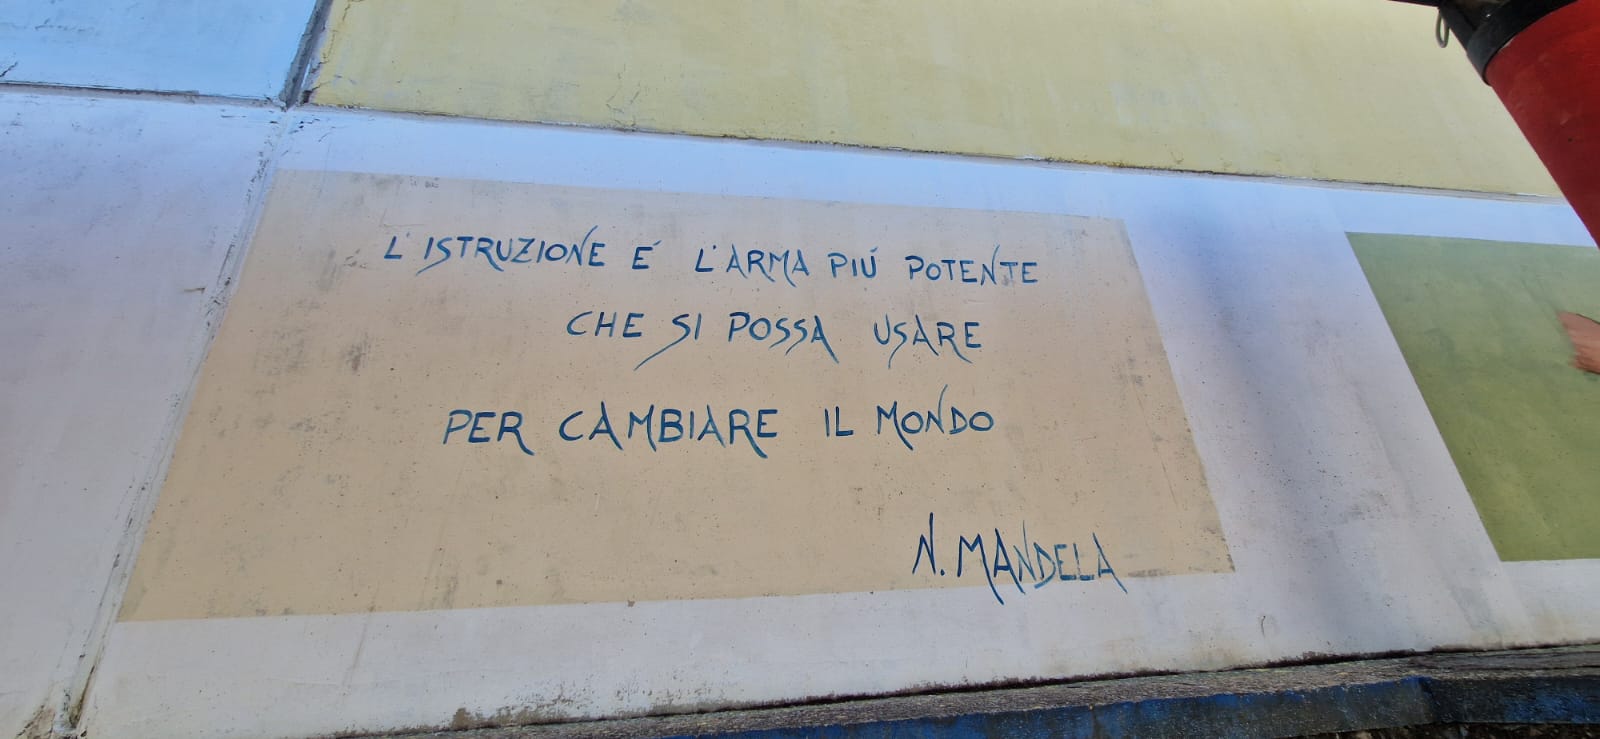 L'ISTRUZIONE É L'ARMA PIÚ POTENTE
CHE SI POSSA USARE
PER CAMBIARE IL MONDO
N. MANDELA